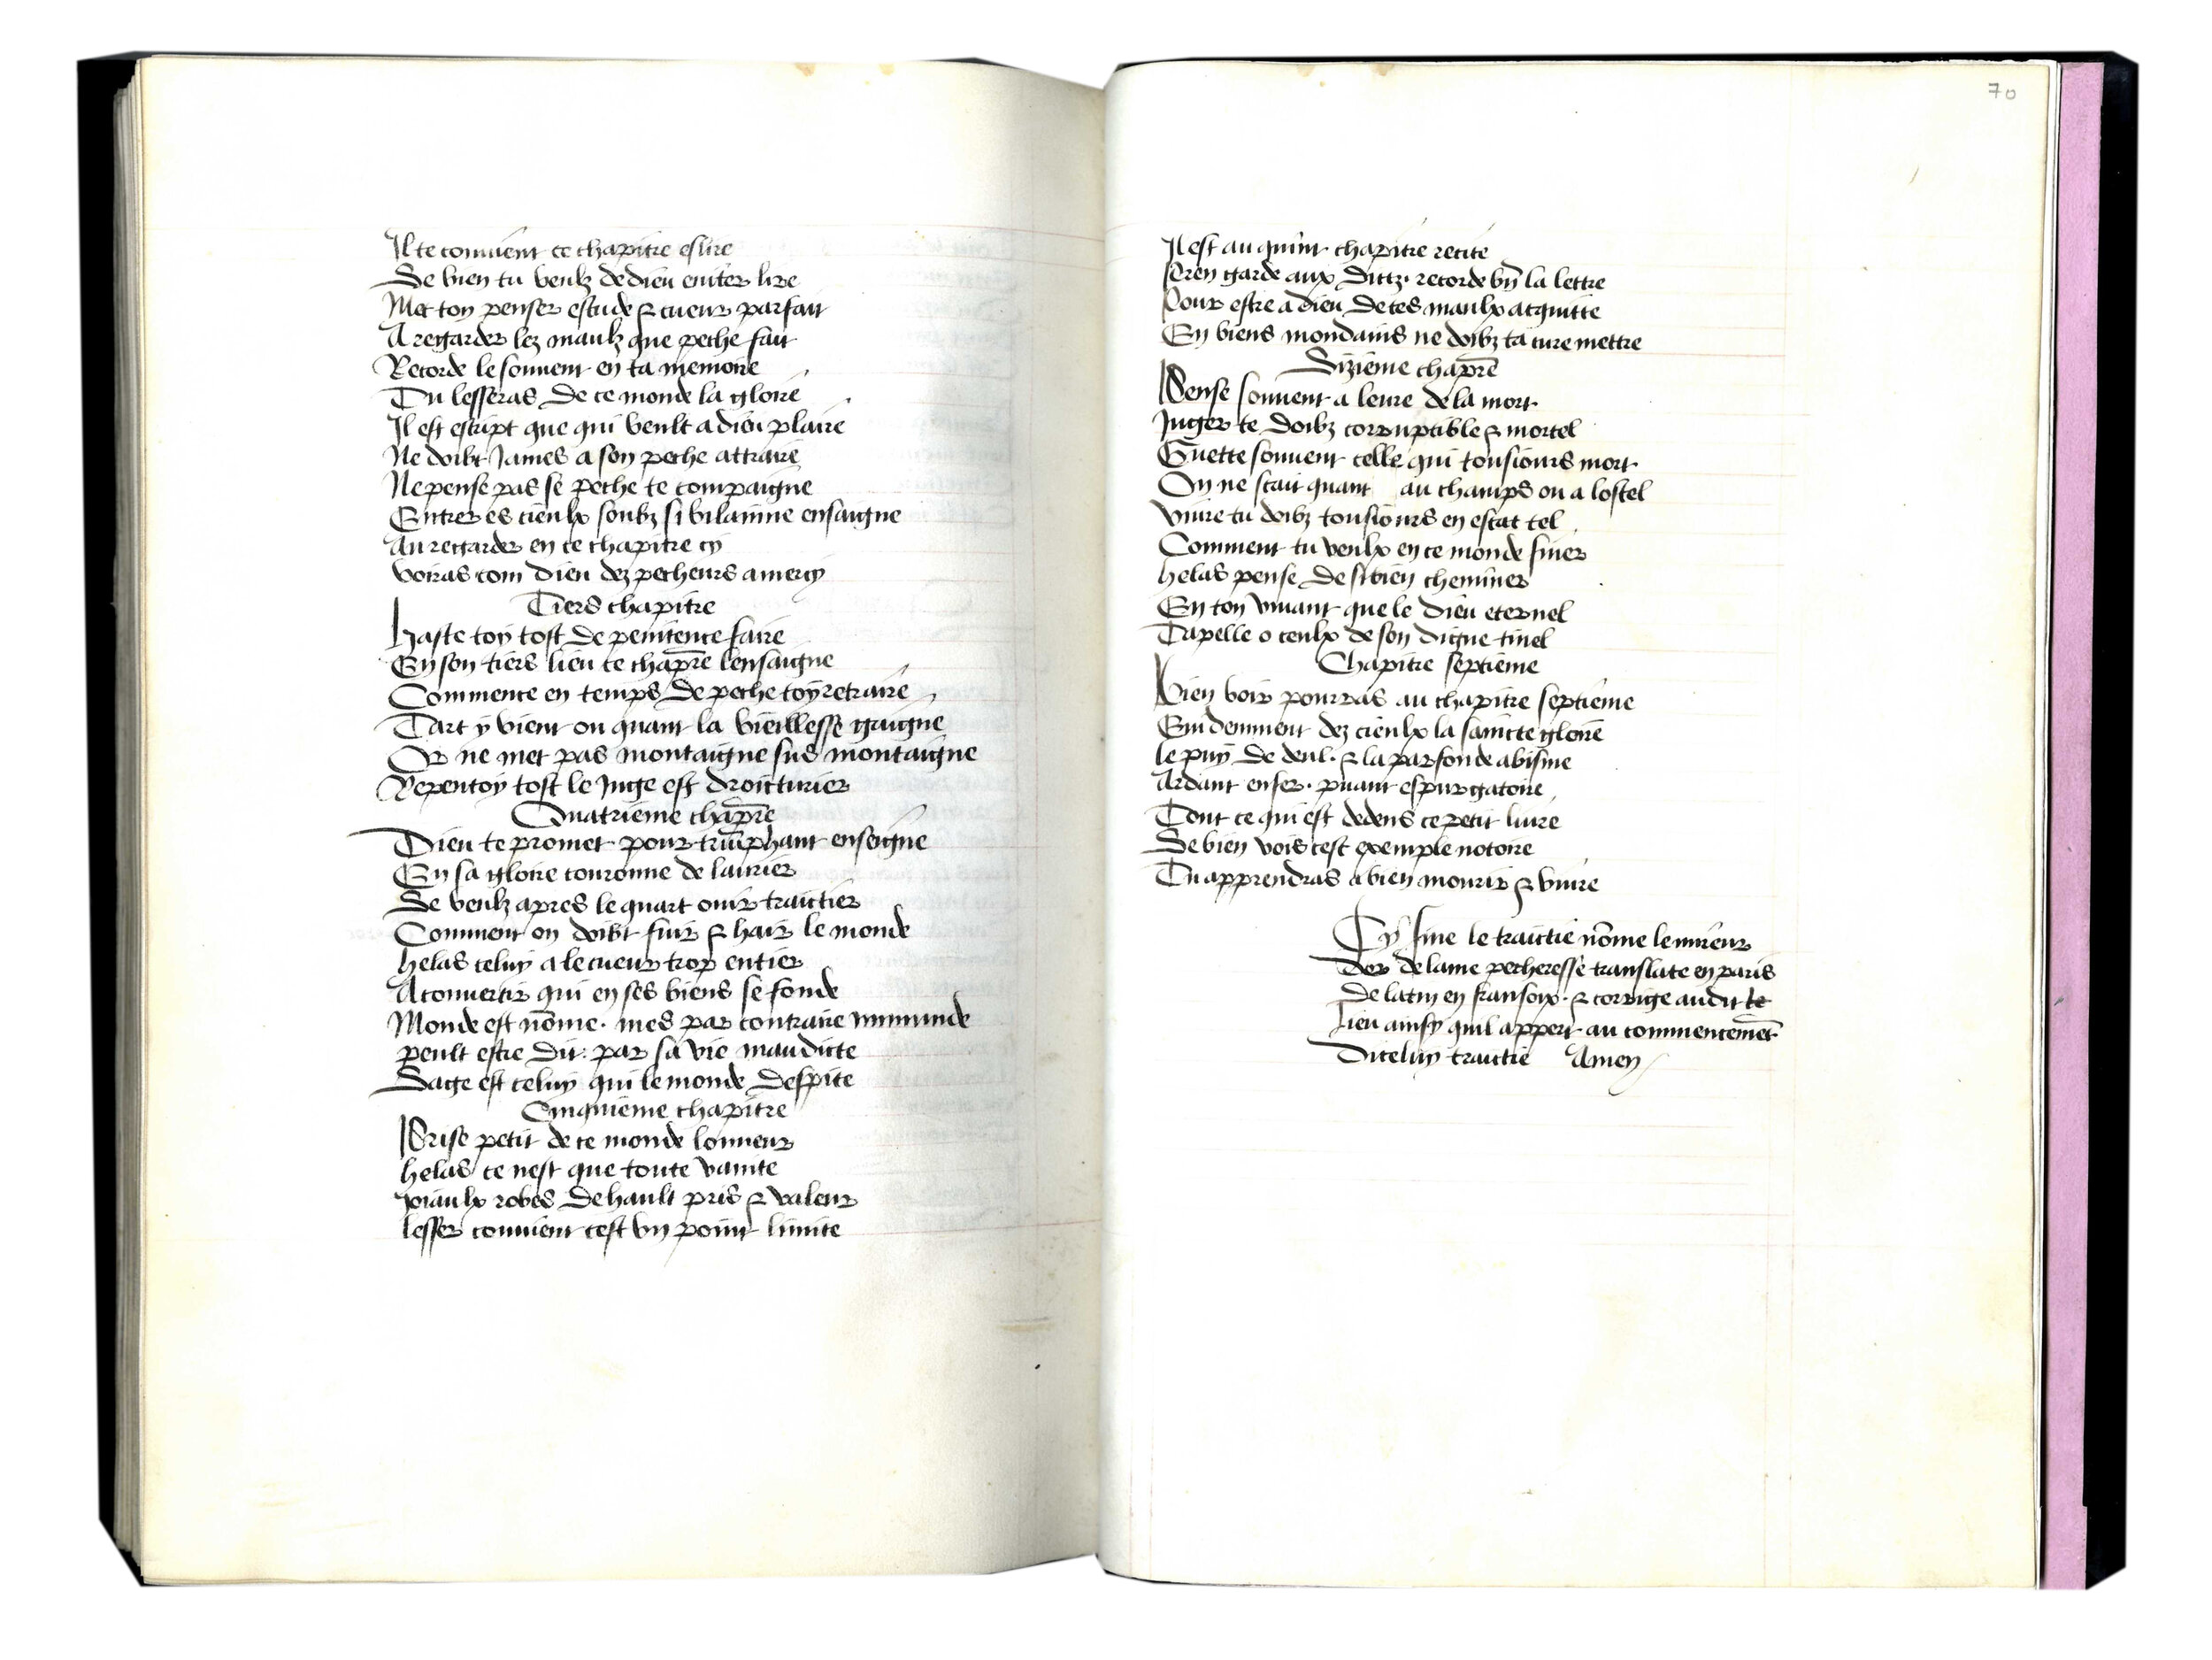 Il te convient ce chapitre eslire
Se bien tu veulz de dieu eviter lire
Met ton penser estude & cueur parfait
A regarder lez maulz que peche fait
Recorde le souvent en ta memoire
Tu lesseras de ce monde la gloire
Il est escript que qui veult a dieu plaire
Ne doibt James a son peche attraire
Ne pense pas se peche te compaigne
Entrer es cieulx soubz si vilainne ensaigne
Au regarder en ce chapitre cy
voiras com dieu dez pecheurs a mercy
Tiers chapitre
Haste toy tost de penitence faire
En son tiers lieu ce chapr̄e lensaigne
Commence en temps de peche toy retraire
Tart y vient on quant la vieillesse gaigne
Or ne met pas montaigne sus montaigne
Repentoy tost le Juge est droicturier
Quatrieme chapr̄e
Dieu te promet pour triūphant enseigne
En sa gloire couronne de laurier
Se veulz apres le quart ouir traictier
Comment on doibt fuir & hair le monde
helas celuy a le cueur trop entier
A convertir qui en ses biens se fonde
Monde est nōme. mes par contraire immunde
peult estre dit. par sa vie maudicte
Sage est celuy qui le monde despite
Cinquieme chapitre
Prise petit de ce monde lonneur
helas ce nest que toute vanite
Joiaulx robes de hault pris & valeur
lesser convient cest vn point limite
70
Il est au quint chapitre recite
Pren garde aux dictz. recorde bn̄ la lettre
Pour estre a dieu de tes maulx acquitte
En biens mondains ne doibz ta cure mettre
Sizieme chapr̄e
Pense souvent a leure de la mort.
Juger te doibz corruptible & mortel
Guette souvent celle qui tousiours mort.
On ne scait quant au champs ou a lostel
vivre tu doibz tousiours en estat tel
Comment tu veulx en ce monde finer
helas pense de si bien cheminer
En ton vivant que le dieu eternel
Tapelle o ceulx de son digne tinel
Chapitre septieme
Bien voir pourras au chapitre septieme
Evidemment dez cieulx la saincte gloire
le puy de deul. & la parfonde abisme
Ardant enfer. puant espurgatoire
Tout ce qui est dedens ce petit livre
Se bien vois cest exemple notoire
Tu apprendras a bien mourir & vivre
Cy fine le traictie nōme le mireur
dor de lame pecheresse translate en paris
de latin en fransoix. & corrige audit le
Lieu ainsy quil appert au commencemēt
Diceluy traictie Amen